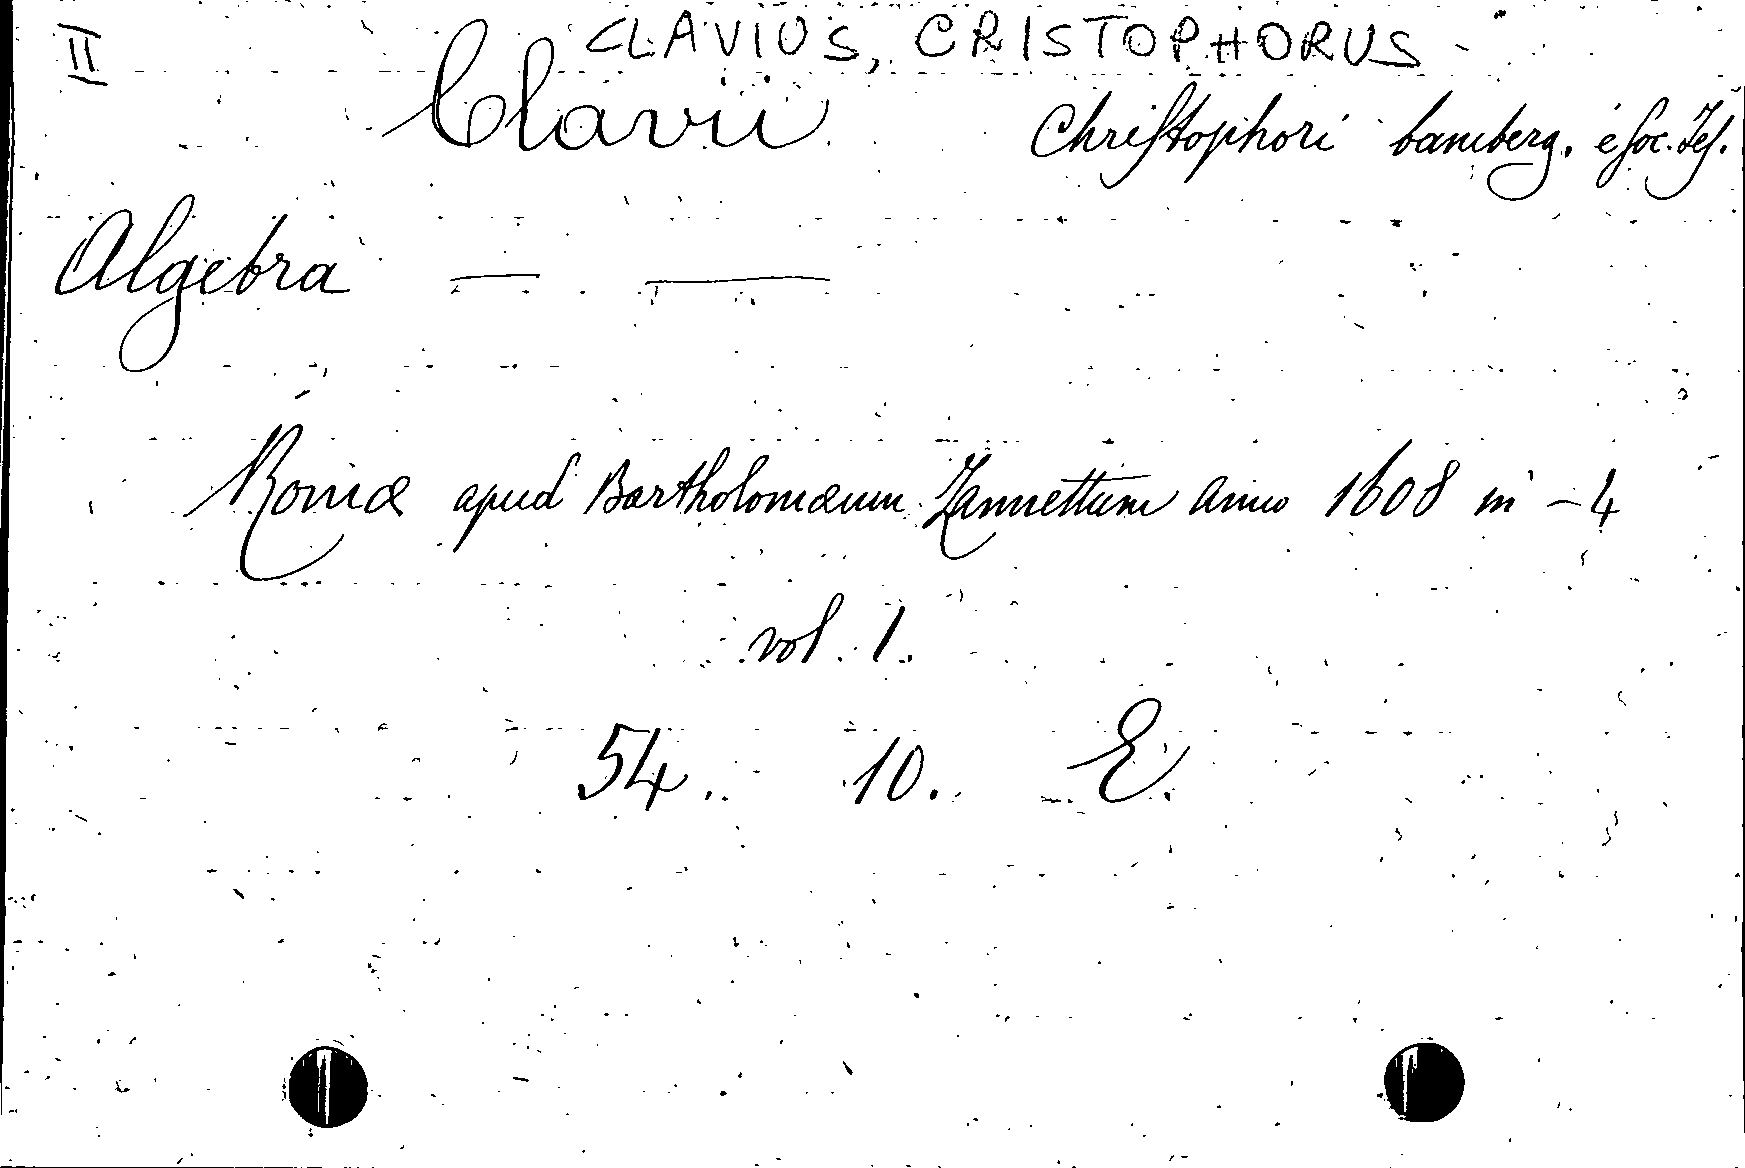 II CLAVIUS, CRISTOPHORUS
Clavii Christophori bamberg. è Soc. Jes.
Algebra — —
Romæ apud Bartholomæum Zannettum anno 1608 in -4
vol. 1.
54. 10. E.